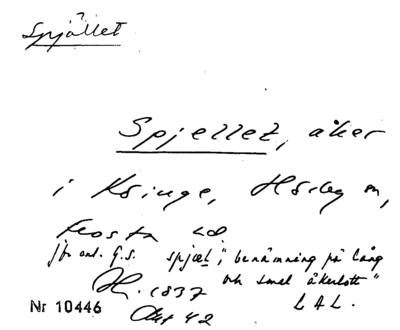 Spjället
Spjellet, åker
i Kvinge, Hörby sn,
Frosta hd
jfr ant. G.S. spjæl, "benämning på lång
och smal åkerlott"
H. 1837
Akt 42
L A L.
Nr 10446